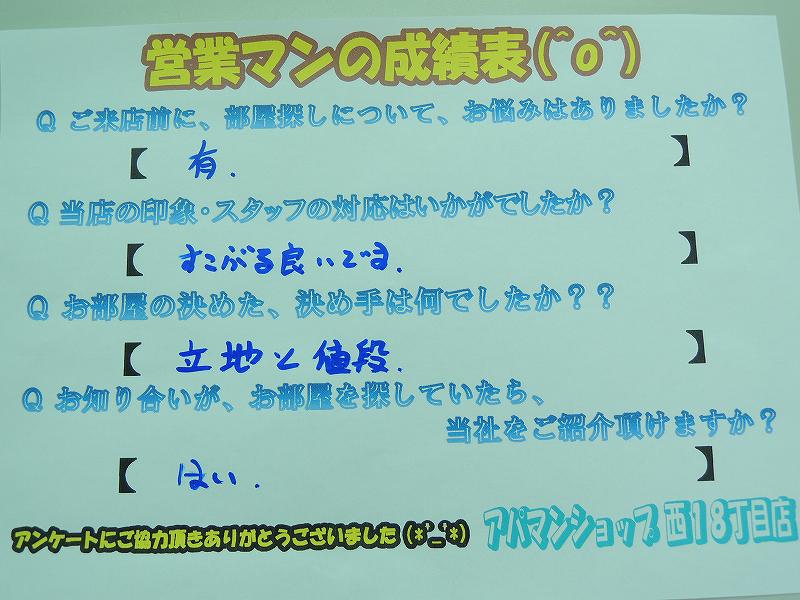 営業マンの成績表(^o^)
Q ご来店前に、部屋探しについて、お悩みはありましたか？
【 有. 】
Q 当店の印象・スタッフの対応はいかがでしたか？
【 すこぶる良いです. 】
Q お部屋の決めた、決め手は何でしたか？？
【 立地と値段. 】
Q お知り合いが、お部屋を探していたら、
当社をご紹介頂けますか？
【 はい. 】
アンケートにご協力頂きありがとうございました(*^_^*)
アパマンショップ 西18丁目店